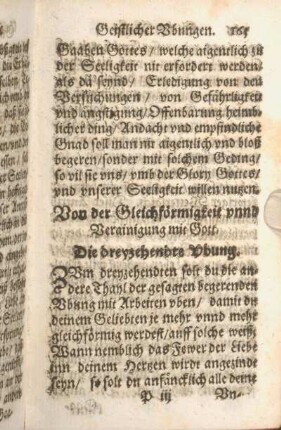 Geistlicher Vbungen.
Gaaben Gottes/ welche aigentlich zu
der Seeligkeit nit erfordert werden/
als da seynd/ Erledigung von den
Versuchungen/ von Gefährligkeit
vnd ängstigung/ Offenbarung heimb-
licher ding/ Andacht vnd empfindliche
Gnad soll man nit aigentlich vnd bloß
begeren/ sonder mit solchem Geding/
so vil sie vns/ vmb der Glory Gottes/
vnd vnserer Seeligkeit willen nutzen.
Von der Gleichförmigkeit vnnd
Verainigung mit Gott.
Die dreyzehendte Vbung.
ZVm dreyzehendten solt du die an-
dere Thayl der gesagten begerenden
Vbung mit Arbeiten vben/ damit du
deinem Geliebten je mehr vnnd mehr
gleichförmig werdest/ auff solche weiß;
Wann nemblich das Fewer der Liebe
inn deinem Hertzen wirdt angezündt
seyn/ so solt du anfäncklich alle deine
P iij
Vn-